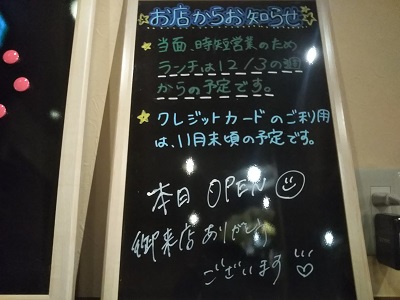 お店からお知らせ
当面、時短営業のため
ランチは12/3の週
からの予定です。
クレジットカードのご利用
は、11月末頃の予定です。
本日 OPEN
御来店ありがとう
ございます